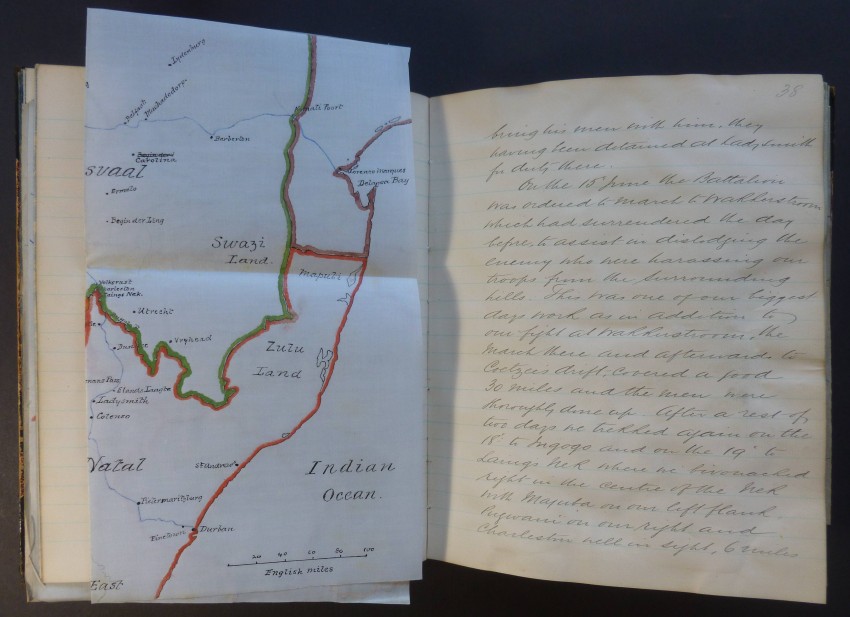 Lydenburg
Belfast
Machadodorp
Komati Poort
Barberton
Carolina
svaal
Lorenco Marques
Delagoa Bay
Ermelo
Swazi
Land.
Maputi
Volkcrust
Laings Nek.
Utrecht
Vryheid
Zulu
Land
Dundee
Elands Laagte
Ladysmith
Colenso
Natal
St Andrews
Indian
Ocean.
Pietermaritzburg
Pinetown
Durban
20 40 60 80 100
English miles
East
38
bring his men with him, they
having been detained at Ladysmith
for duty there.
On the 15' June the Battalion
was ordered to march to Wakkerstroom
which had surrendered the day
before to assist in dislodging the
enemy who were harassing our
troops from the surrounding
hills. This was one of our biggest
days work as in addition to
our fight at Wakkerstroom, the
march there and afterwards to
Coetzies drift, covered a good
30 miles and the men were
thoroughly done up. After a rest of
two days we trekked again on the
18' to Ingogo and on the 19' to
Laings Nek where we bivouacked
right in the centre of the Nek
with Majuba on our left flank
on our right and
Charleston well in sight, 6 miles